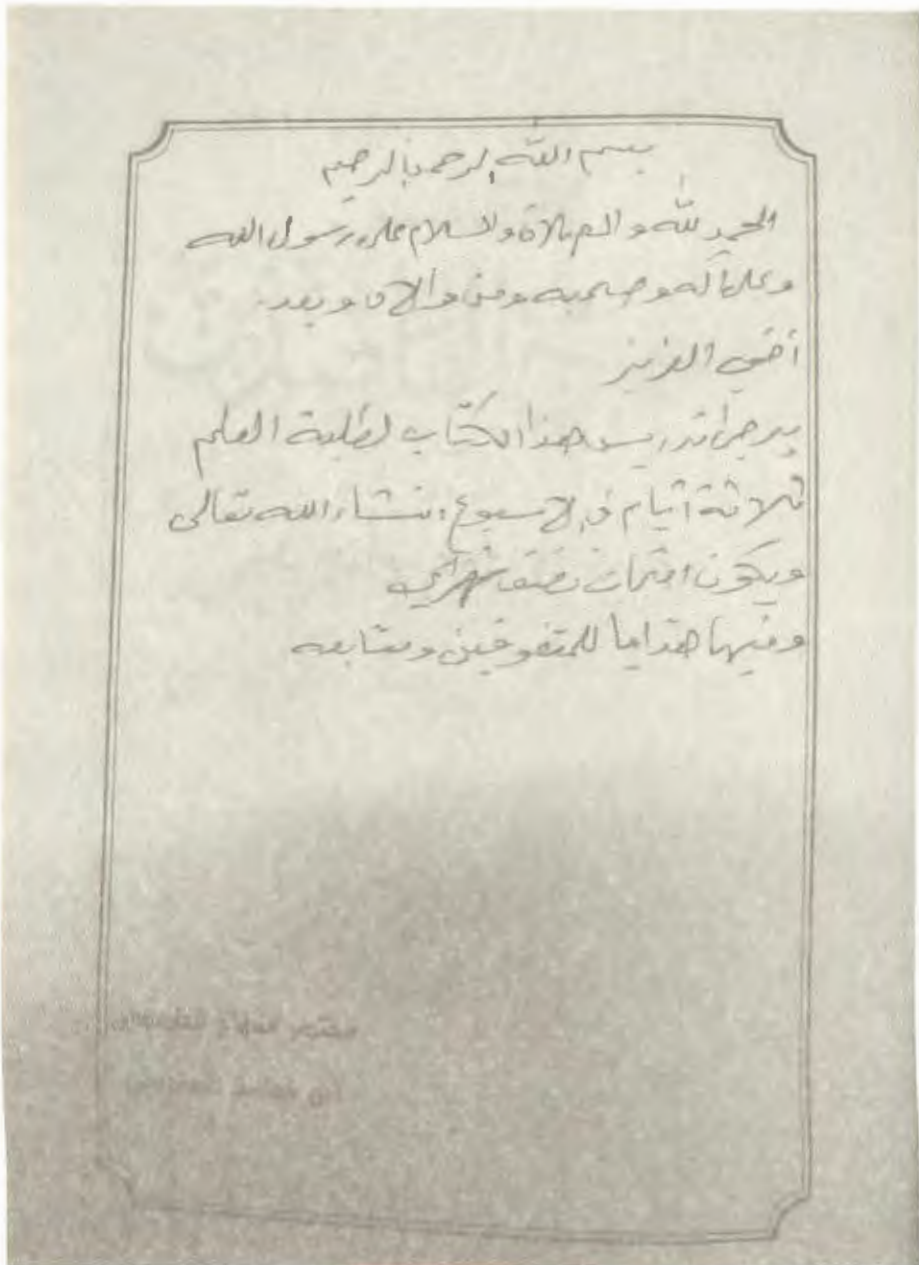 بسم الله الرحمن الرحيم
الحمد لله والصلاة والسلام على رسول الله
وعلى آله وصحبه ومن والاه وبعد.
أخي العزيز
يرجى تدريس هذا الكتاب لطلبة العلم
ثلاثة أيام في الاسبوع انشاء الله تعالى
ويكون امتحان نصف شهري
وفيها هدايا للمتفوقين ومتابعه